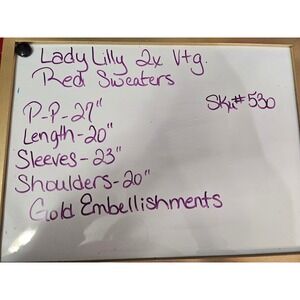 Lady Lilly 2x Vtg.
Red Sweaters
SKu# 530
P-P-27"
Length-20"
Sleeves-23"
Shoulders-20"
Gold Embellishments